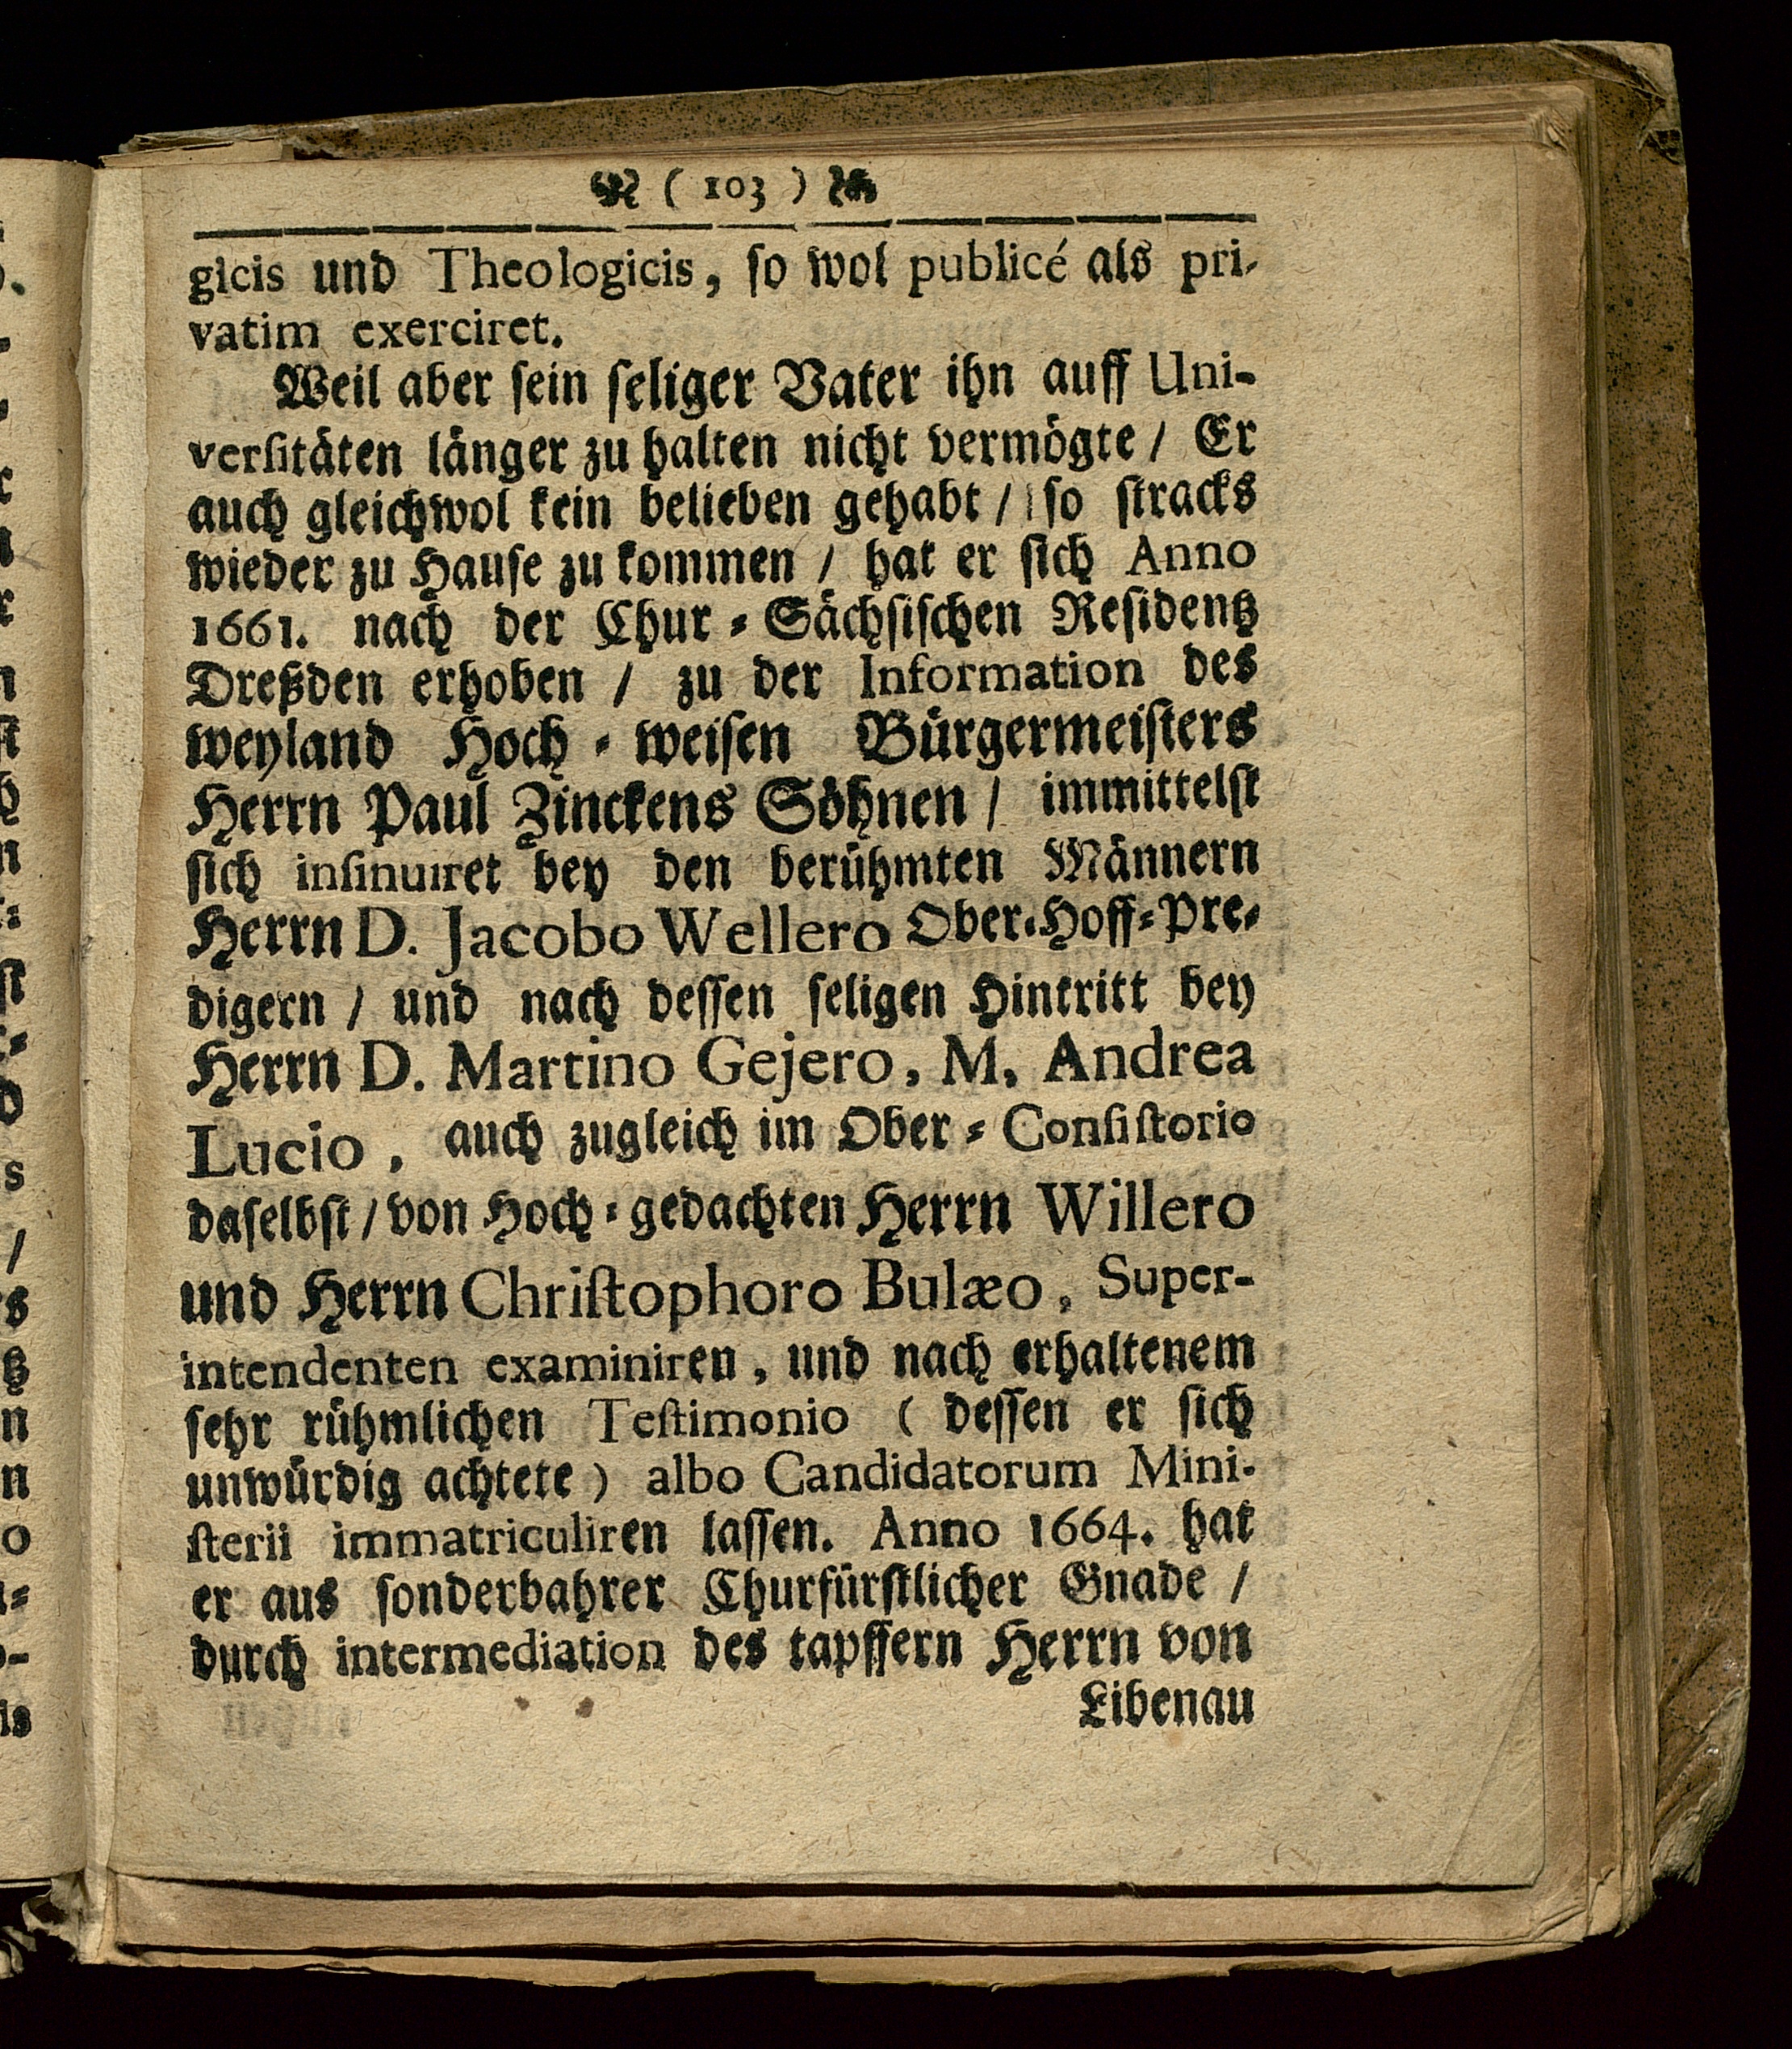 ( 103 )
gicis und Theologicis, ſo wol publicé als pri-
vatim exerciret.
Weil aber ſein ſeliger Vater ihn auff Uni-
verſitäten länger zu halten nicht vermögte / Er
auch gleichwol kein belieben gehabt / ſo ſtracks
wieder zu Hauſe zu kommen / hat er ſich Anno
1661. nach der Chur-Sächſiſchen Reſidentz
Dreßden erhoben / zu der Information des
weyland Hoch-weiſen Bürgermeiſters
Herrn Paul Zinckens Söhnen / immittelſt
ſich inſinuiret bey den berühmten Männern
Herrn D. Jacobo Wellero Ober-Hoff-Pre-
digern / und nach deſſen ſeligen Hintritt bey
Herrn D. Martino Gejero, M. Andrea
Lucio, auch zugleich im Ober-Conſiſtorio
daſelbſt / von Hoch-gedachten Herrn Willero
und Herrn Chriſtophoro Bulæo, Super-
intendenten examiniren, und nach erhaltenem
ſehr rühmlichen Teſtimonio ( deſſen er ſich
unwürdig achtete) albo Candidatorum Mini-
ſterii immatriculiren laſſen. Anno 1664. hat
er aus ſonderbahrer Churfürſtlicher Gnade /
durch intermediation des tapffern Herrn von
Libenau